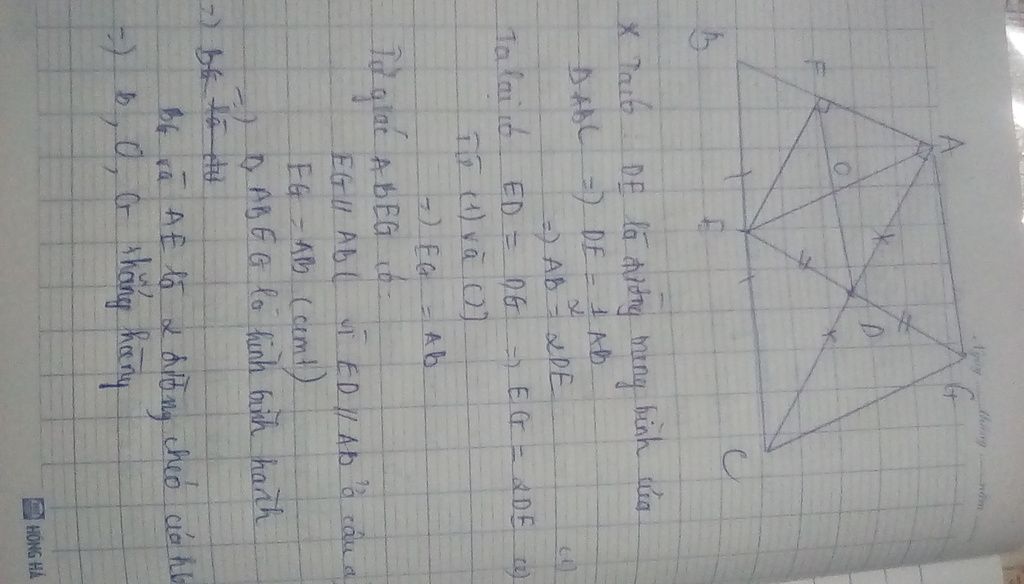 Ngày tháng năm
A
G
F
O
D
B
E
C
b)
* Ta có DE là đường trung bình của
ΔABC => DE = 1/2 AB
=> AB = 2DE (1)
Ta lại có ED = DG => EG = 2DE (2)
Từ (1) và (2)
=> EG = AB
Tứ giác ABEG có:
EG // AB ( vì ED // AB ở câu a
EG = AB (cmt)
=> ABEG là hình bình hành
=> BG là
BG và AE là 2 đường chéo của hb
=> B, O, G thẳng hàng
HỒNG HÀ